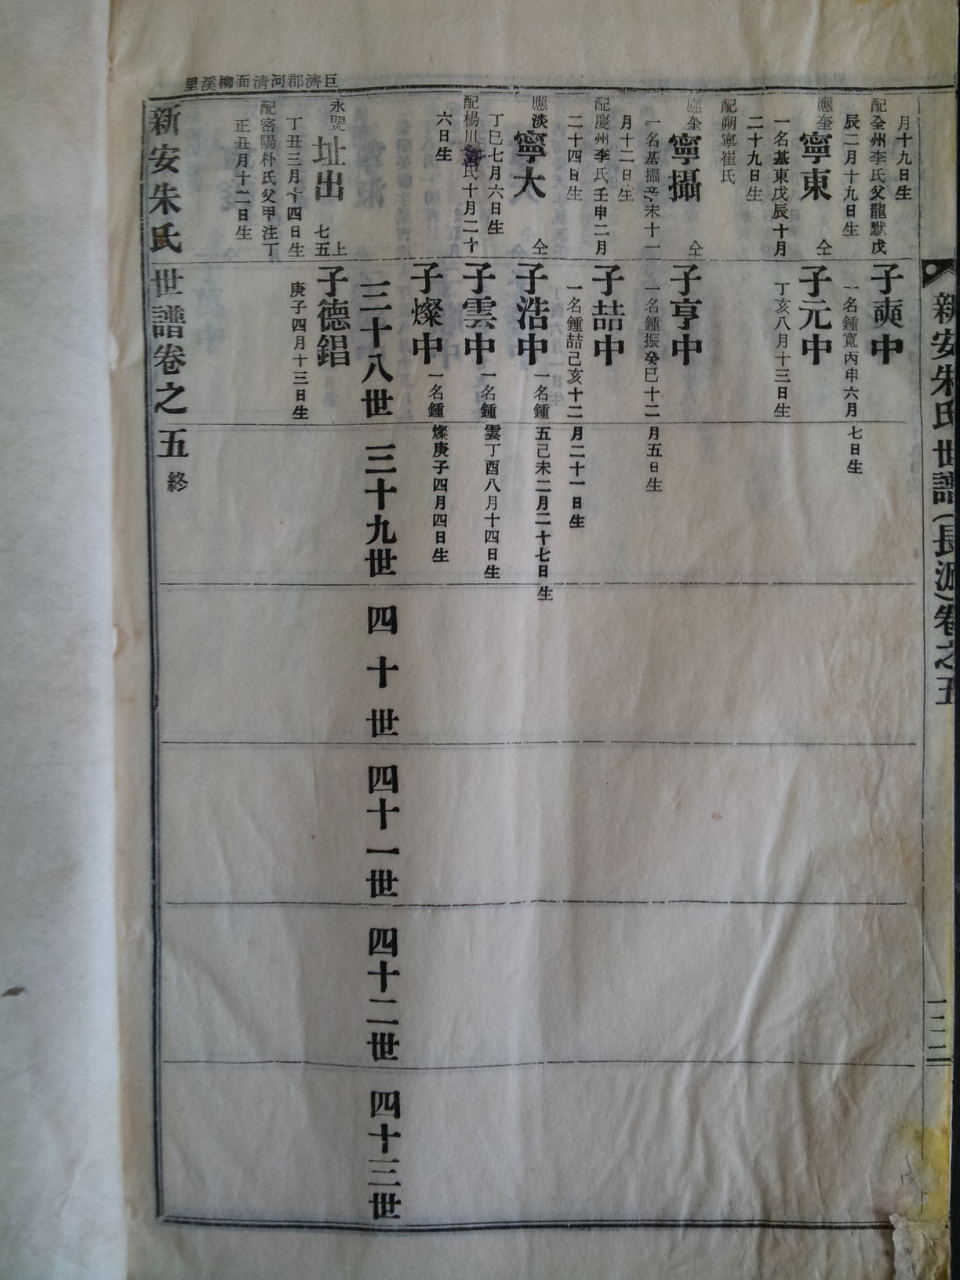 新安朱氏世譜(長派)卷之五
一三二
月十九日生
配全州李氏父龍默戊
辰二月十九日生
應奎
寧東
仝
一名基東戊辰十月
二十九日生
配朔寧崔氏
應奎
寧攝
仝
一名基攝辛未十一
月十二日生
配慶州李氏壬申二月
二十四日生
應淡
寧大
仝
丁巳七月六日生
配楊川 氏十月二十
六日生
永煚
址出
七五
上
丁丑三月十四日生
配密陽朴氏父甲洼丁
正丑月十二日生
子奭中
一名鍾寬丙申六月
七日生
子元中
丁亥八月十三日生
子亨中
一名鍾振癸巳十二
月五日生
子喆中
一名鍾喆己亥十二
月二十一日生
子浩中
一名鍾五己未二月二十七日生
子雲中
一名鍾雲丁酉八月十四日生
子燦中
一名鍾燦庚子四月四日生
三十八世
三十九世
四十世
四十一世
四十二世
四十三世
子德錩
庚子四月十三日生
巨濟郡河淸面柳溪里
新安朱氏世譜卷之五終